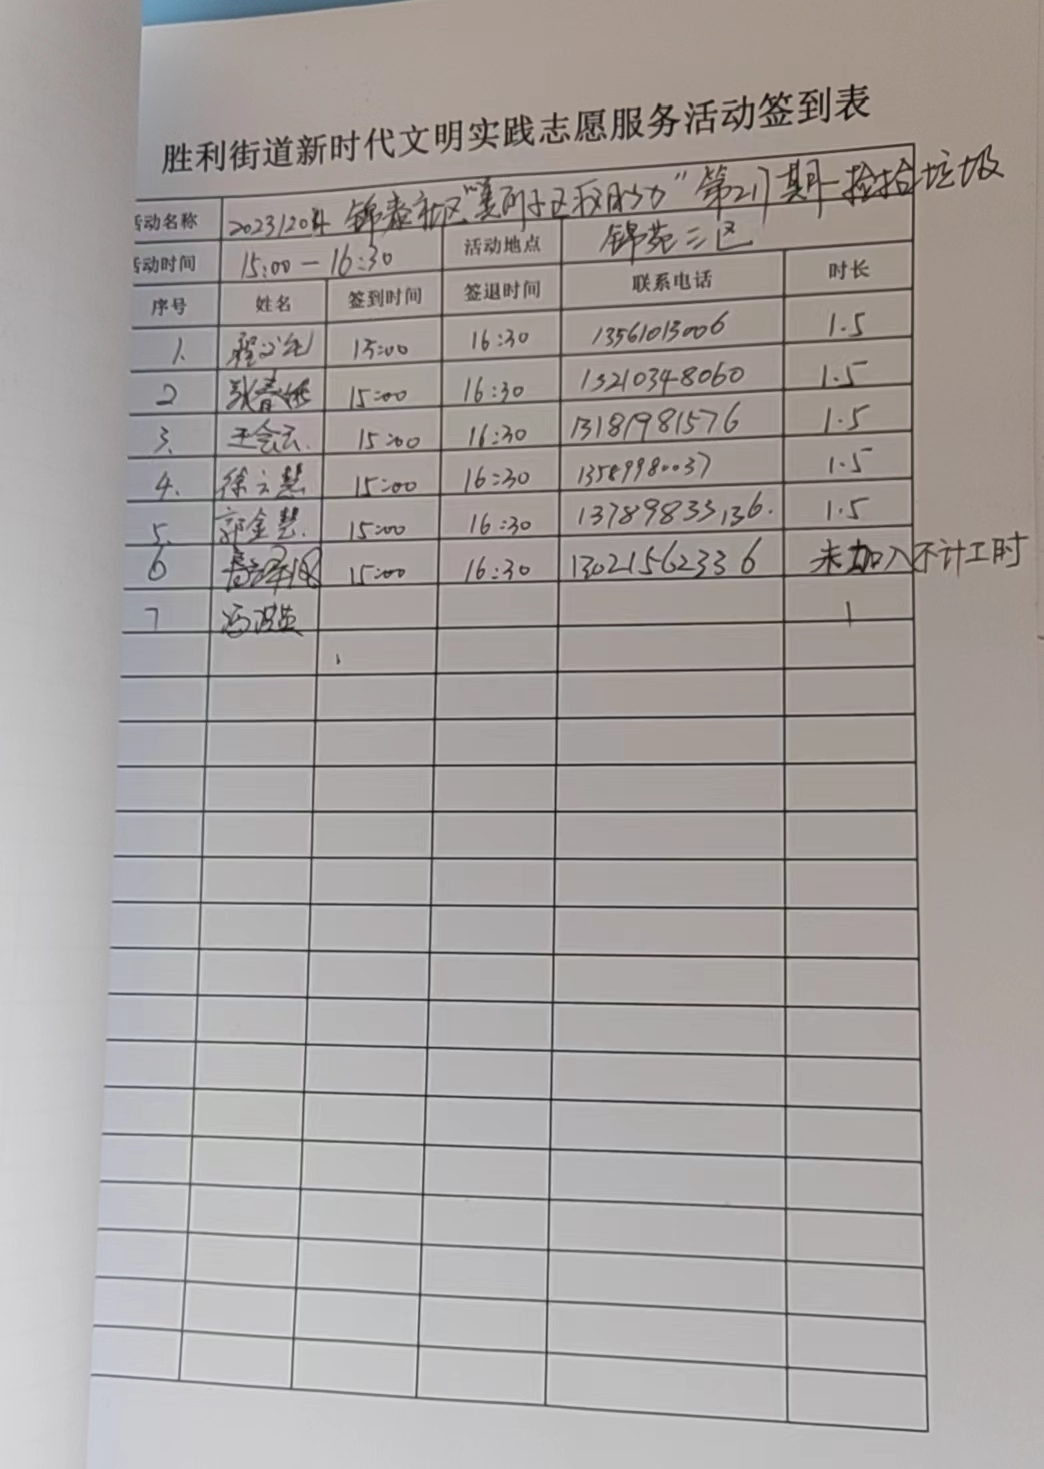 胜利街道新时代文明实践志愿服务活动签到表
活动名称 20231204 锦春社区"美丽社区我助力"第217期-捡拾垃圾
活动时间 15:00-16:30 活动地点 锦苑三区
序号 姓名 签到时间 签退时间 联系电话 时长
1. 15:00 16:30 13561013006 1.5
2 春 15:00 16:30 13210348060 1.5
3. 王会云. 15:00 16:30 13181981576 1.5
4. 徐云慧 15:00 16:30 13589980037 1.5
5. 郭金慧. 15:00 16:30 13789833136. 1.5
6 15:00 16:30 13021562336 未加入不计工时
7 冯 1